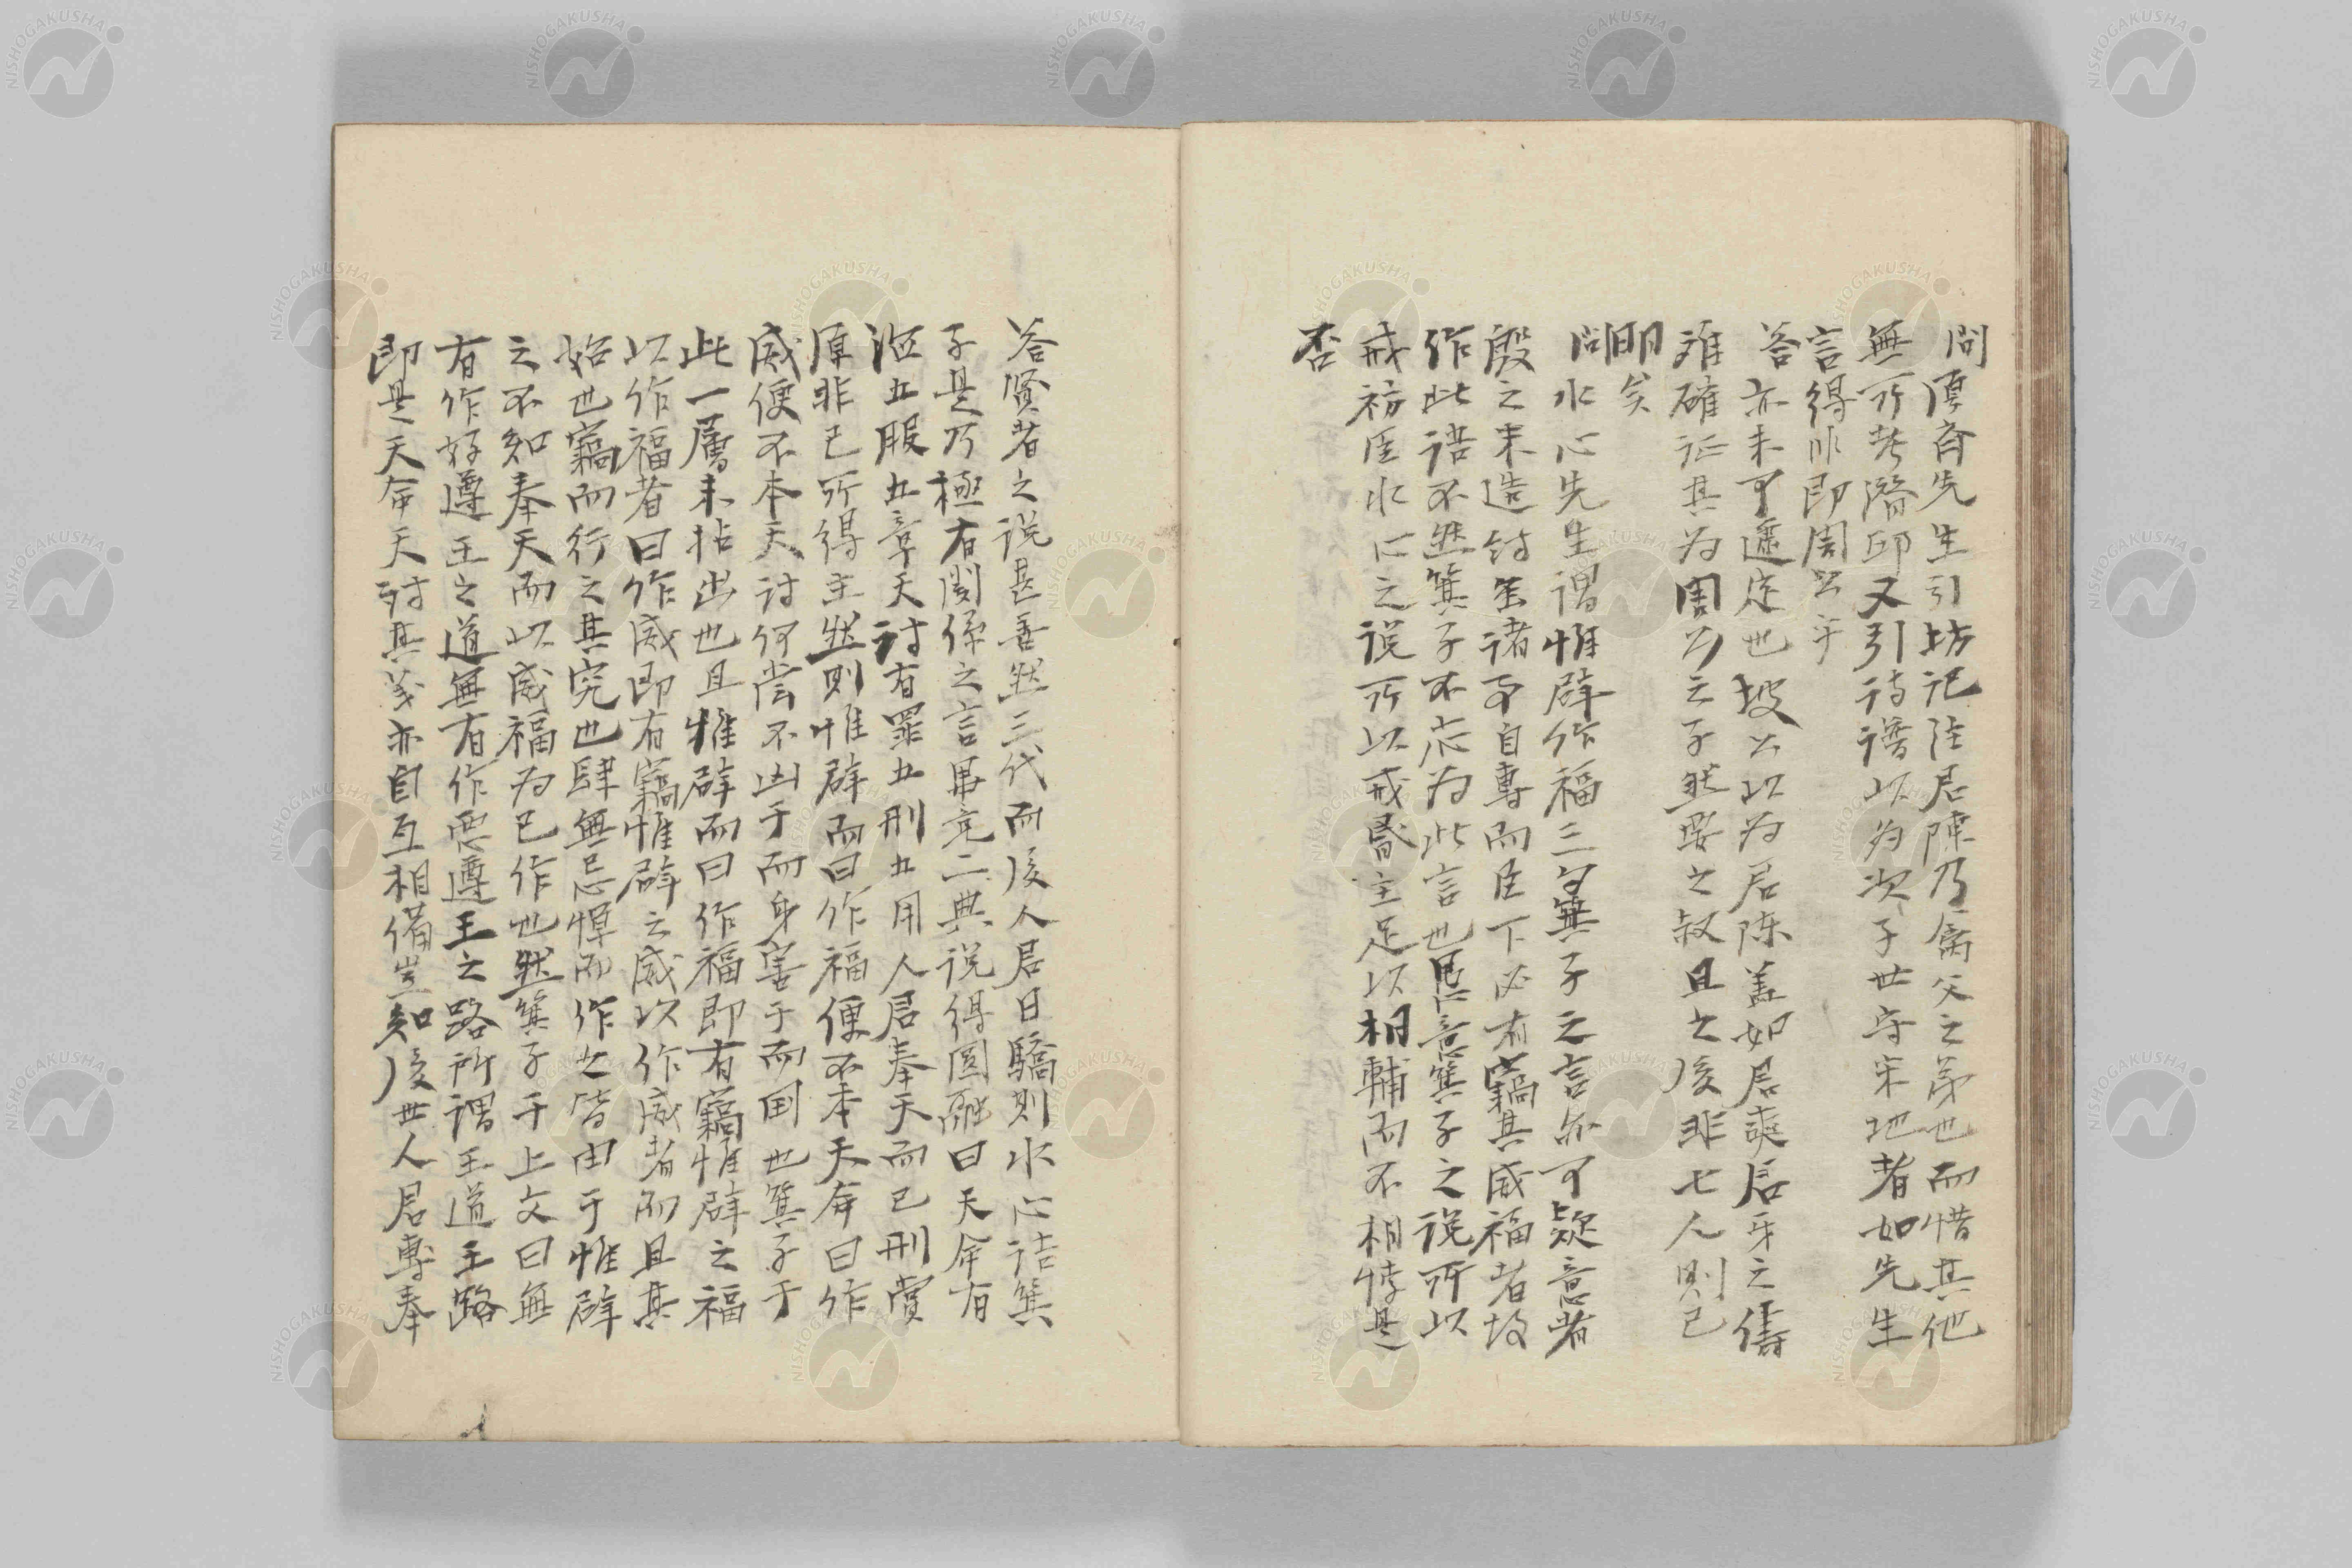 問厚斎先生引坊記注君陳乃周公之弟也而惜其他
無所考潛邱又引詩譜以为次子世守采地者如先生
言得非即周公乎
答亦未可遽定也坡公以为君陳蓋如君奭君牙之儔
难確证其为周公之子然要之叔旦之後非七人則已
明矣
問水心先生謂惟辟作福三句箕子之言亦可疑意者
殷之末造紂至諸事自專而臣下必有竊其威福者故
作此语不然箕子不忘为此言也愚意箕子之说所以
戒衺臣水心之说所以戒昏主足以相輔而不相悖是
否
答賢者之说甚善然三代而後人君日驕則水心诘箕
子是乃極有関係之言畢竟二典说得圓融曰天命有
德五服五章天讨有罪五刑五用人君奉天而已刑賞
原非已所得主然則惟辟而曰作福便不本天命曰作
威便不本天讨何尝不凶于而身害于而国也箕子于
此一層未拈出也且惟辟而曰作福即有竊惟辟之福
以作福者曰作威即有竊惟辟之威以作威者而且其
始也竊而行之其究也肆無忌憚而作之皆由于惟辟
之不知奉天而以威福为己作也然箕子于上文曰無
有作好遵王之道無有作惡遵王之路所謂王道王路
即是天命天讨其义亦自互相備岂知後世人君專奉
NISHOGAKUSHA